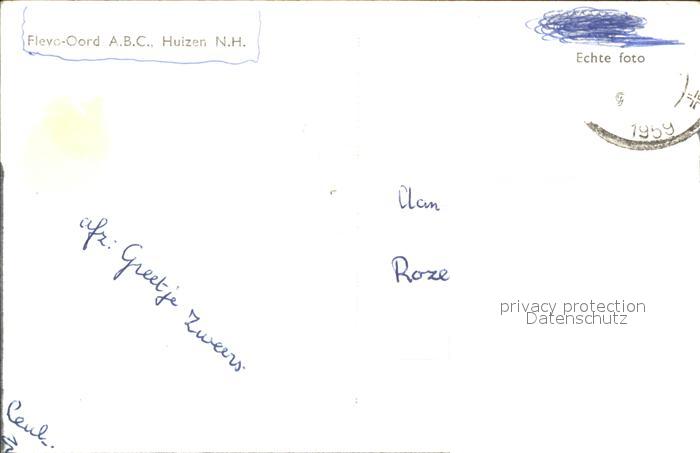 Flevo-Oord A.B.C., Huizen N.H.
Echte foto
1959
Aan
Roze
privacy protection
Datenschutz
afz: Greetje Zweers.